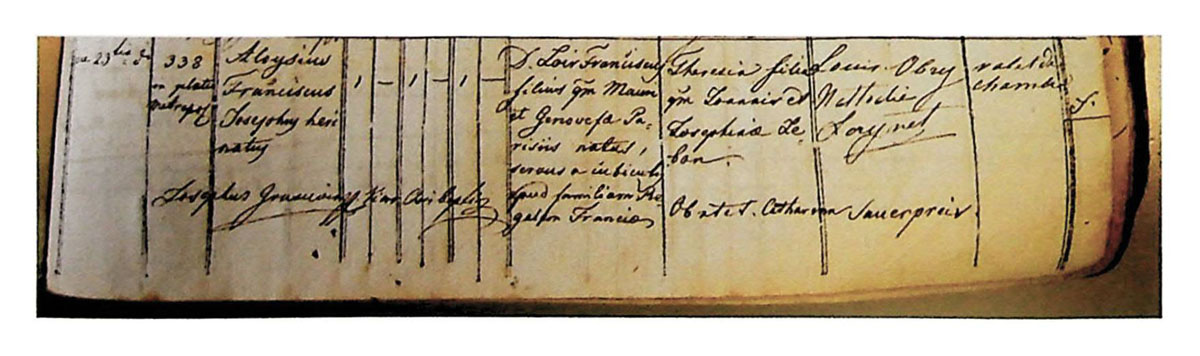 338
Aloysius
Franciscus
Josephus heri
natus
1 - 1 - 1 -
D. Loir Franciscus
filius qm Maur
et Genovefæ Pa-
risiis natus,
servus a cubiculi
apud familiam Re
galem Franciæ
Theresia filia
qm Joannis et
Josephinæ Le
bon
Louis Obry
Nathalie
valet de
chambre
Josephus
Obstet. Catharina Sauerpreis.